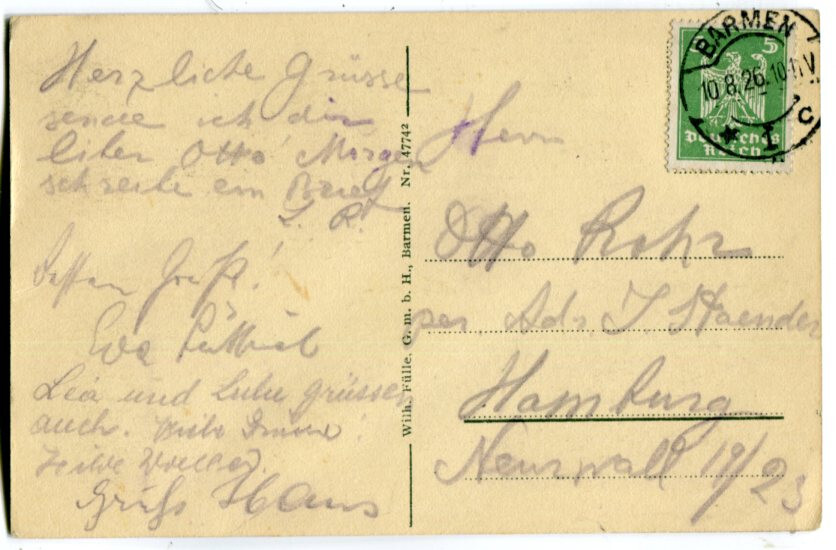 Herzliche Grüsse
sende ich dir
liber Otto! Morgen
schreibe ein Brief
L. R.
Besten Gruß!
Eva
Lea und Lulu grüssen
auch.
Gruß Hans
Wilh. Fülle, G. m. b. H., Barmen. Nr. 47742
BARMEN
10.8.26.10-11V
* f c
5
Deutsches
Reich
Herrn
Otto Rohr
per. Adr. J. Staender
Hamburg
Neuerwall 19/23